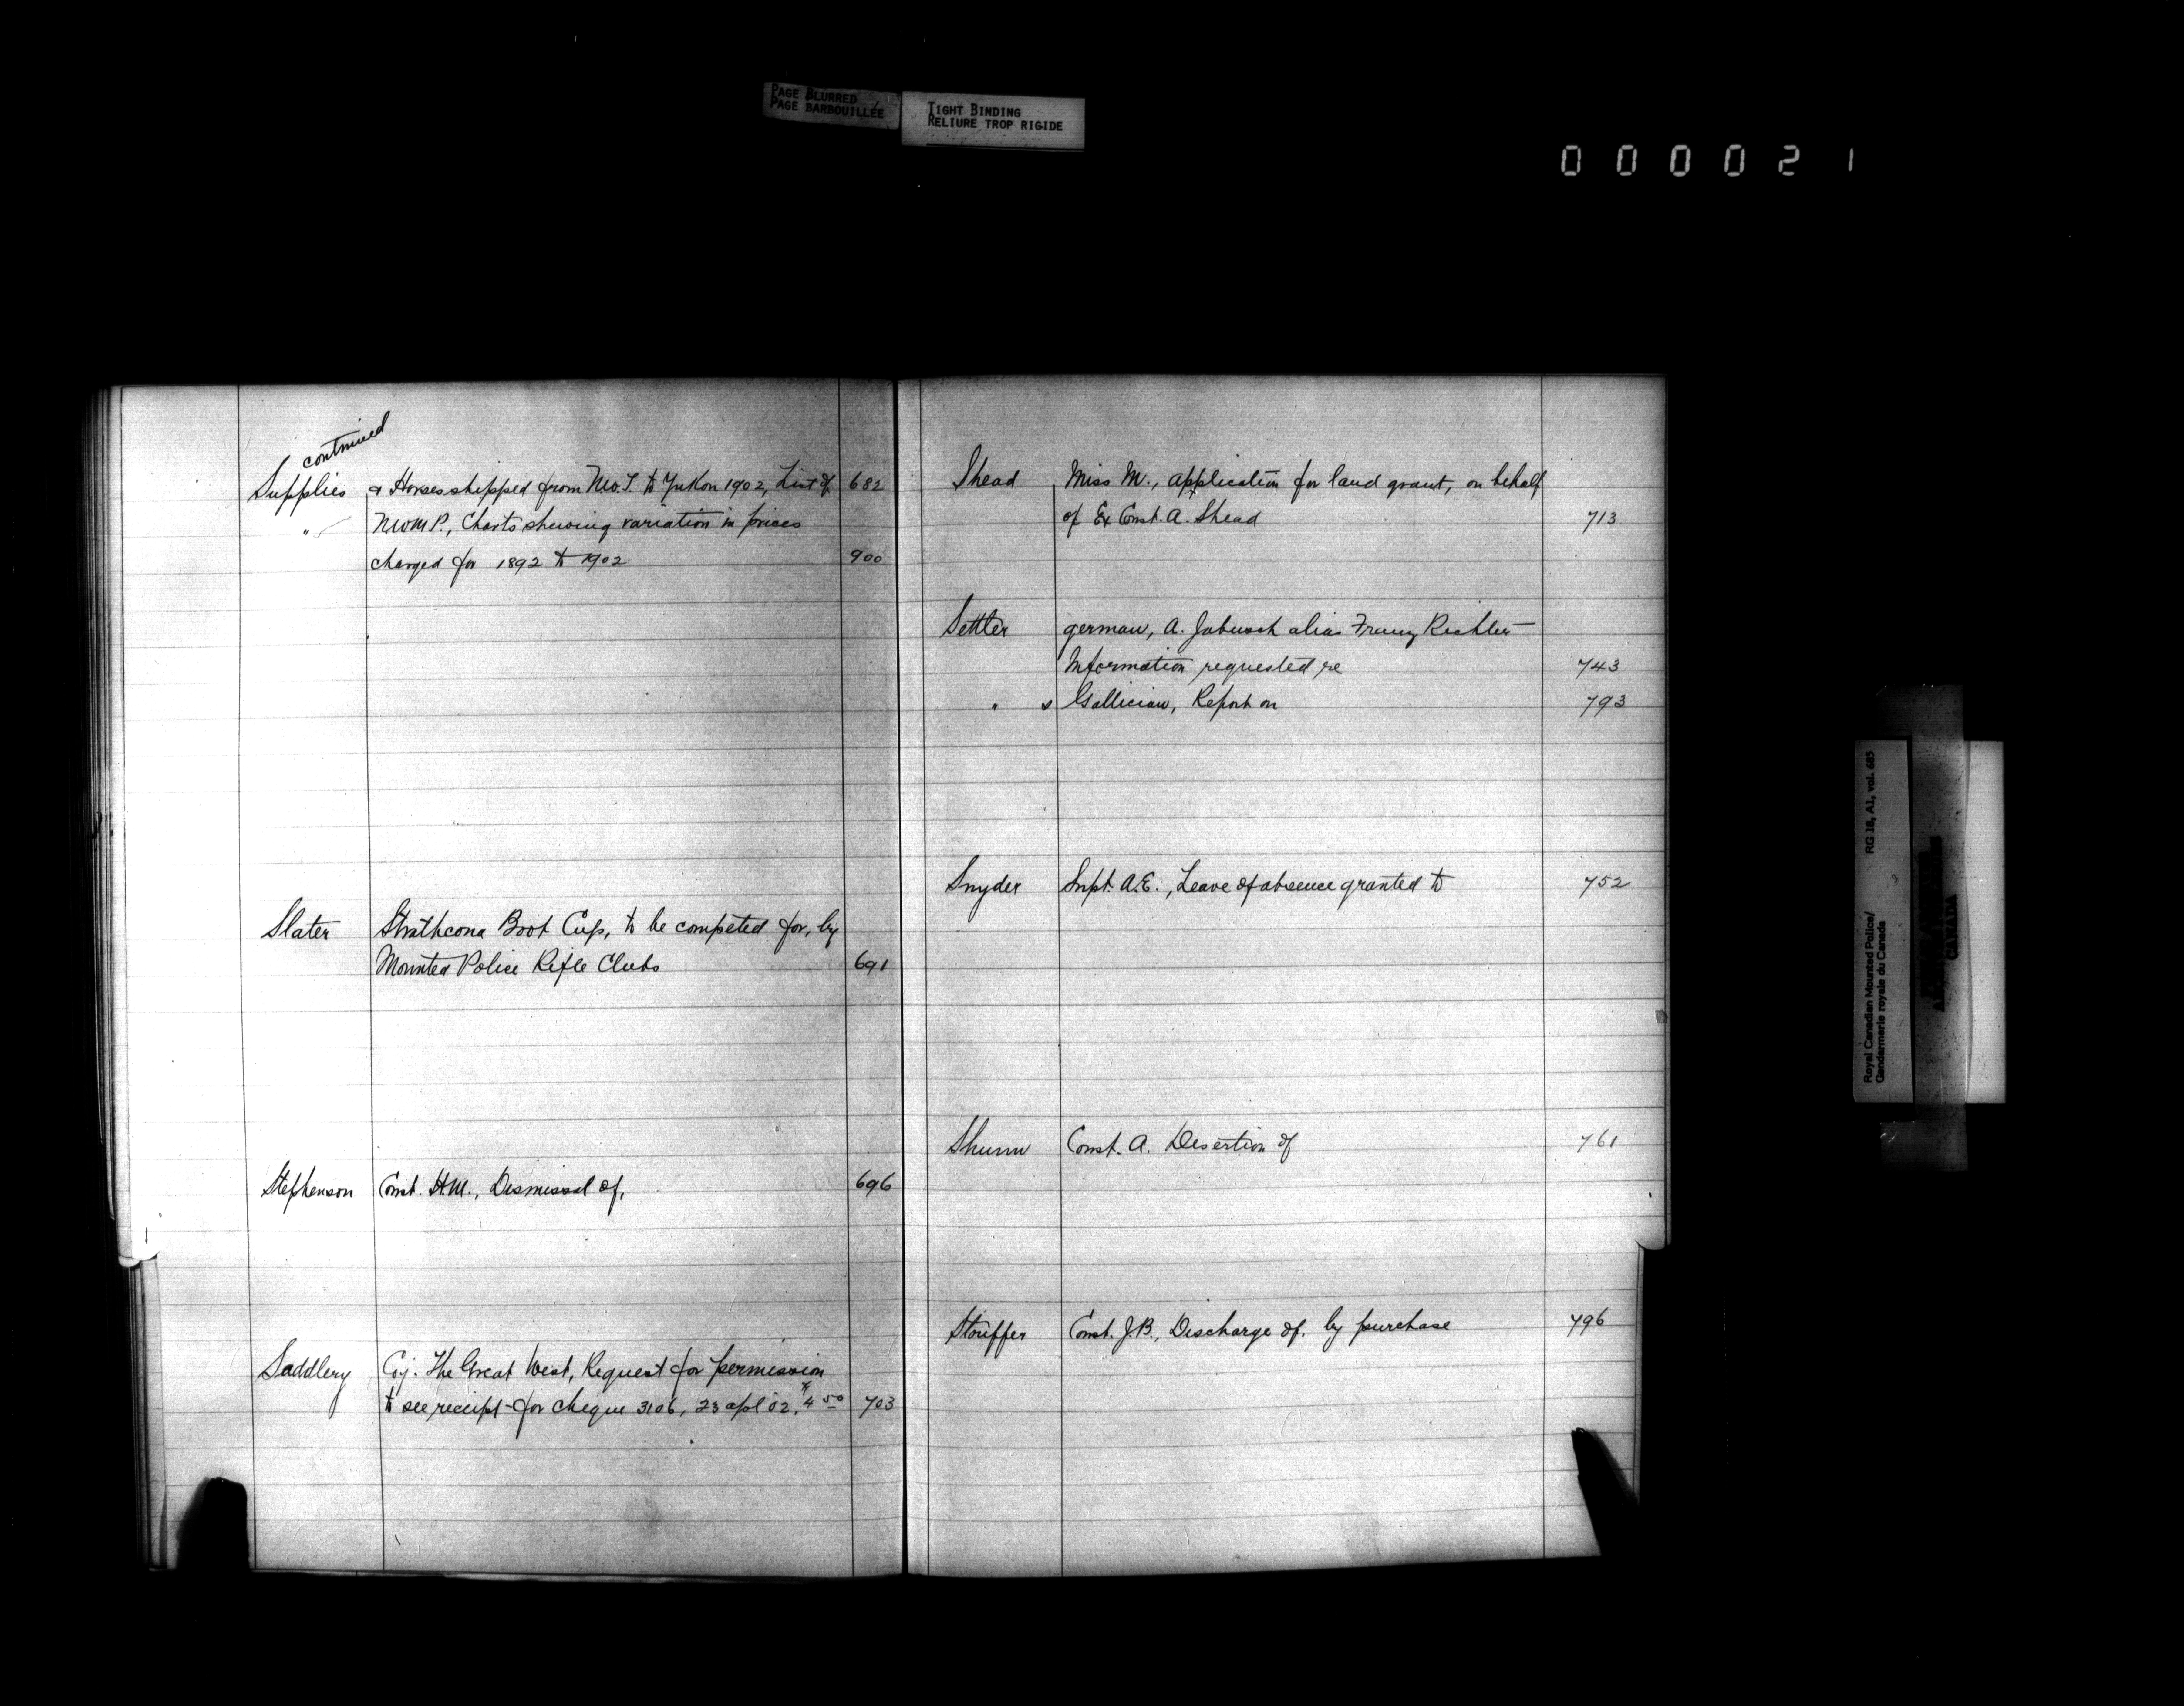 PAGE BLURRED
PAGE BARBOUILLÉE
TIGHT BINDING
RELIURE TROP RIGIDE
000021
continued
Supplies & Horses shipped from N.W.T. to Yukon 1902, List of 682
" N.W.M.P., Charts shewing variation in prices
charged for 1892 to 1902 900
Slater Strathcona Boot Cup, to be competed for, by
Mounted Police Rifle Clubs 691
Stephenson Const. H.M., Dismissal of, 696
Saddlery Coy. The Great West, Request for permission
to see receipt for cheque 3106, 23 apl 02, $4 50 703
Shead Miss M., application for land grant, on behalf
of Ex Const. A. Shead 713
Settler german, A. Jabusch alias Franz Richter
Information requested re 743
" s Gallician, Report on 793
Snyder Supt. A.E., Leave of absence granted to 752
Const. A. Desertion of 761
Stouffer Const. J.B., Discharge of, by purchase 796
Royal Canadian Mounted Police/ RG 18, A1, vol. 685
Gendarmerie royale du Canada
CANADA